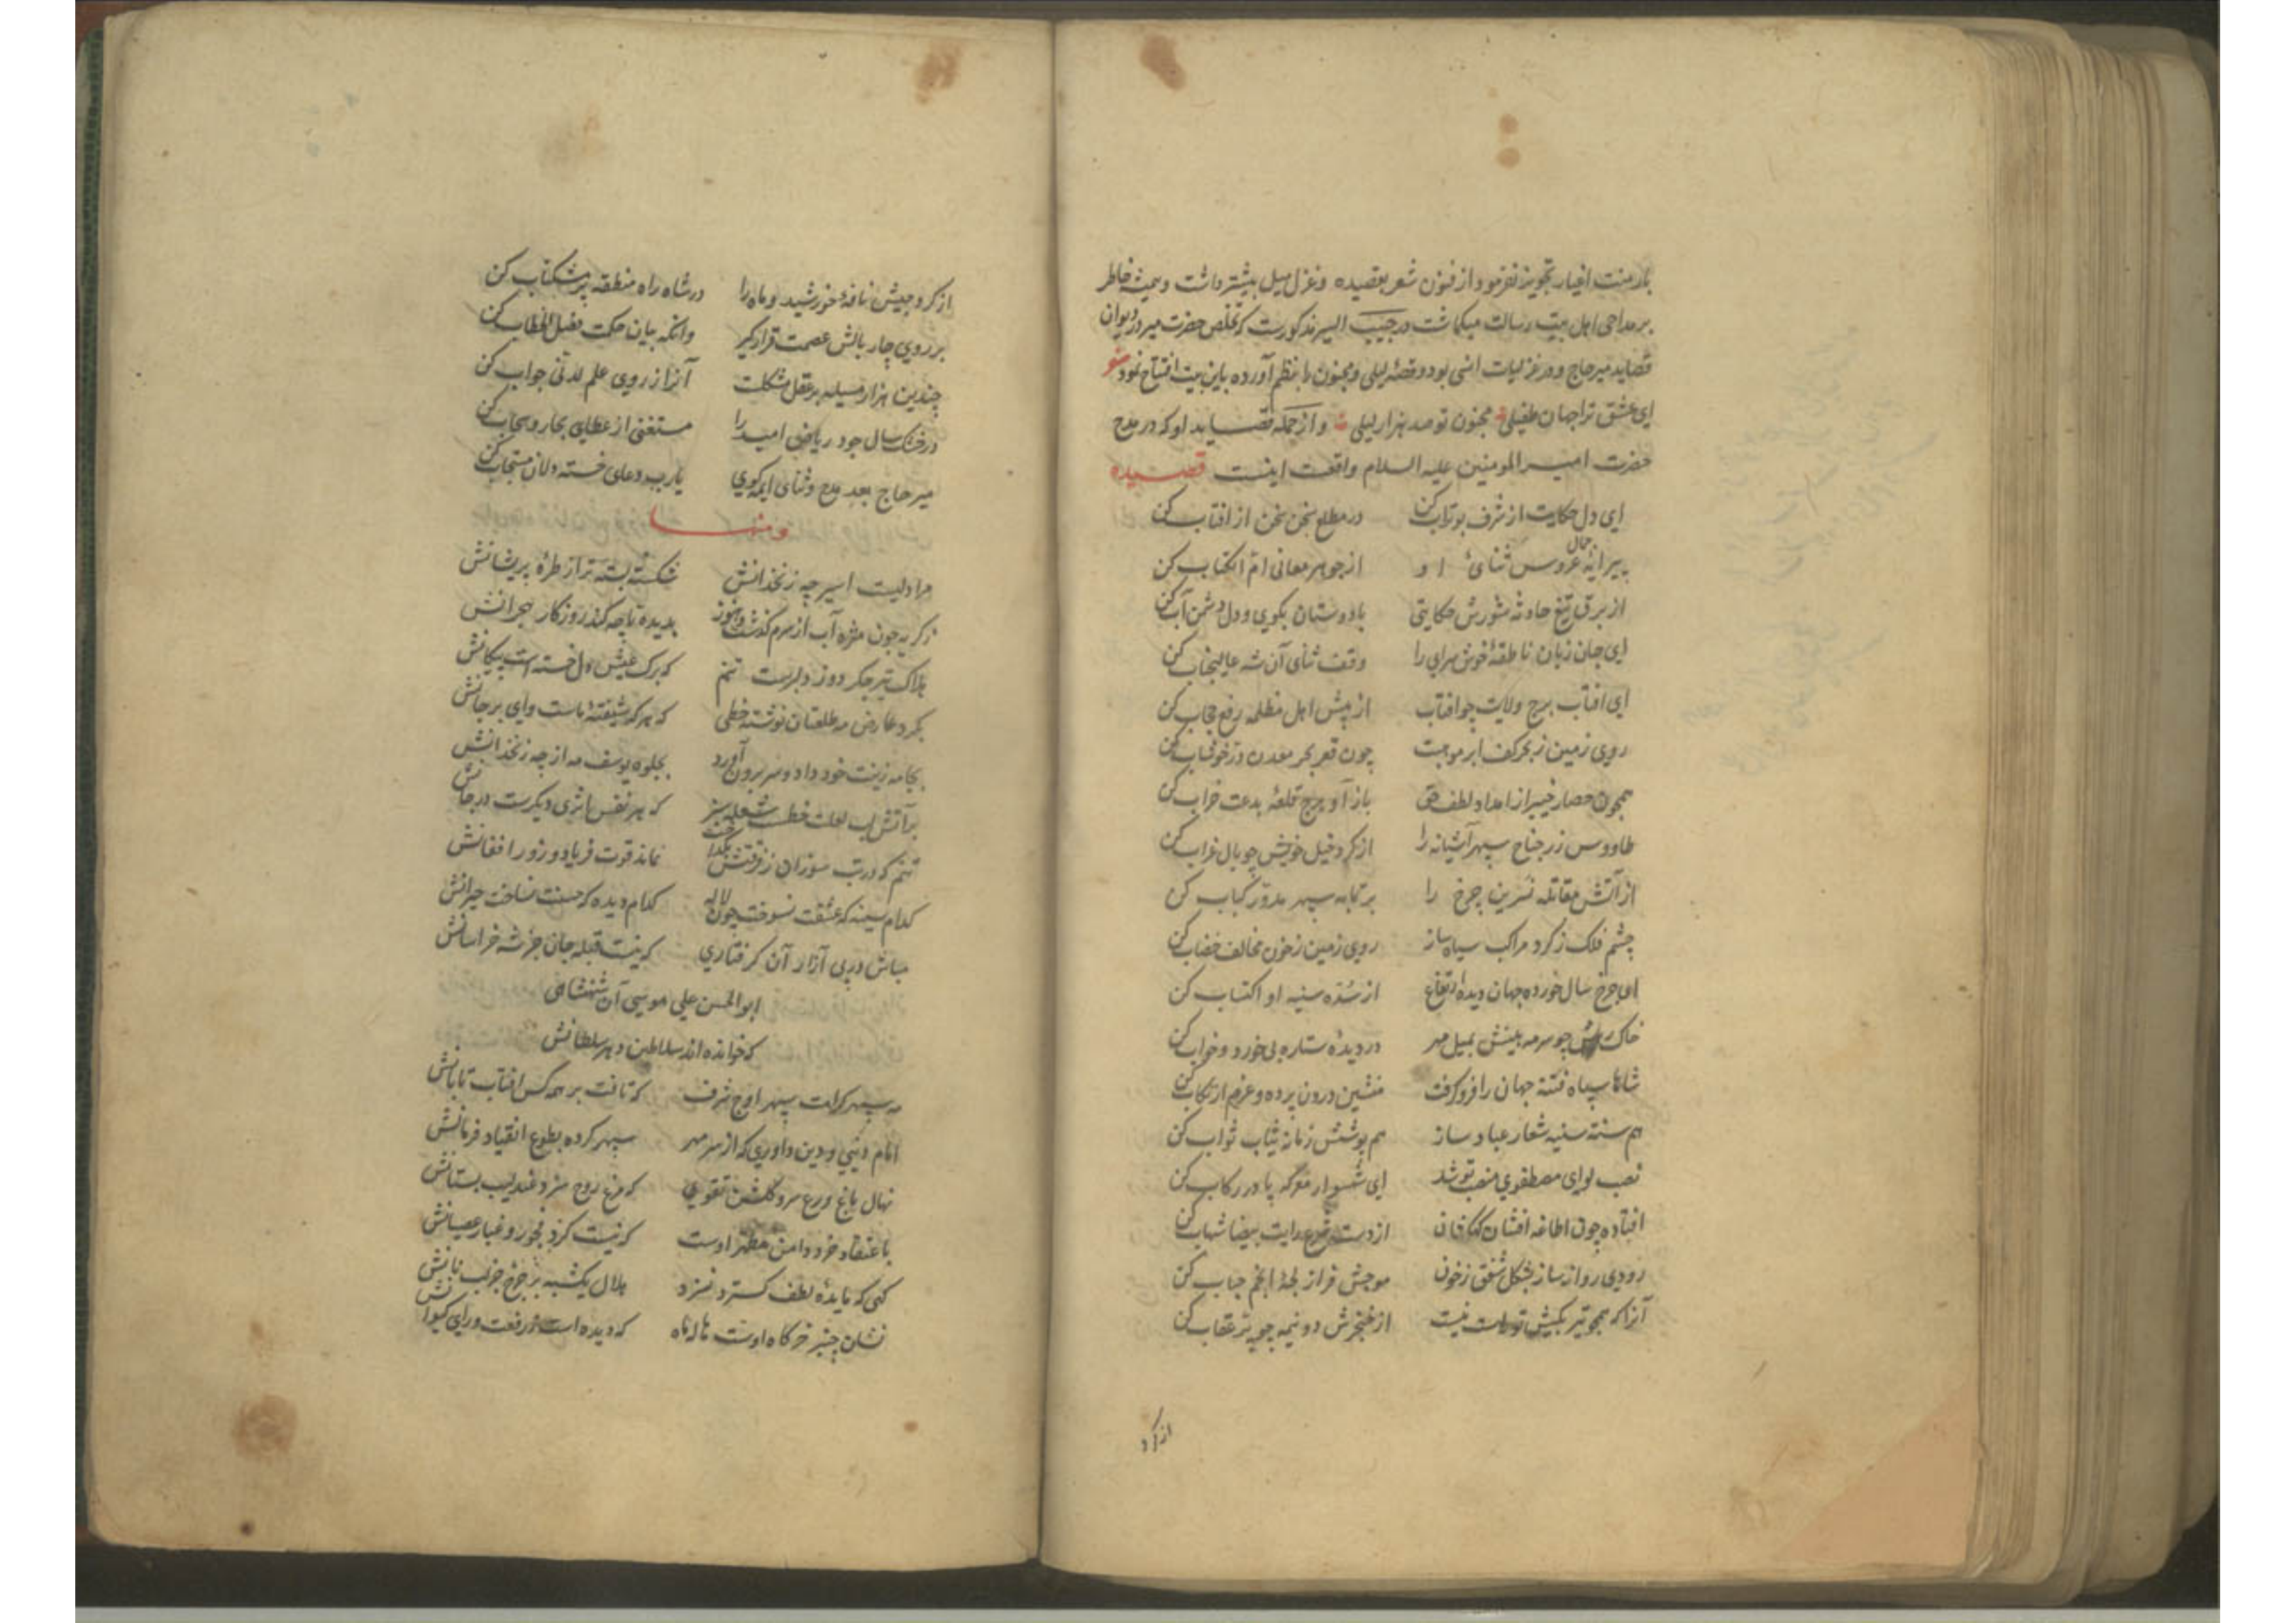 بار منت اغیار تجویز نفرمود و از فنون شعر بقصیده و غزل میل بیشتر داشت و همیشه خاطر
بر مداحی اهل بیت رسالت میکماشت در حبیب السیر مذکورست که تخلص حضرت میر در دیوان
قصاید میرحاج و در غزلیات انسی بود و قصه لیلی و مجنون را بنظم آورده باین بیت افتتاح نمود شعر
ای عشق ترا جهان طفیلی مجنون تو صد هزار لیلی و از جمله قصاید او که در مدح
حضرت امیر المومنین علیه السلام واقعت اینست قصیده
ای دل حکایت از شرف بوتراب کن در مطلع سخن سخن از افتاب کن
پیرایه جمال عروس ثنای او از جوهر معانی ام الکتاب کن
از برق تیغ حادثه شورش حکایتی با دوستان بکوی و دل دشمن آب کن
ای جان زبان ناطقه خوش سرای را وقف ثنای آن شه عالیجناب کن
ای افتاب برج ولایت چو افتاب از پیش اهل مظلمه رفع حجاب کن
روی زمین ز بحر کف ابر موهبت چون قعر بحر معدن در خوشاب کن
همچون حصار خیبر از امداد لطف حق باز آ و برج قلعه بدعت خراب کن
طاووس زر جناح سپهر آشیانه را از کرد خیل خویش چو بال غراب کن
از آتش مقاتله نسرین چرخ را بر تابه سپهر مدور کباب کن
چشم فلک ز کرد مراکب سیاه ساز روی زمین ز خون مخالف خضاب کن
ای چرخ سال خورده جهان دیده ارتفاع از سده سنیه او اکتساب کن
خاک چو سرمه بینش بمیل مهر در دیده ستاره بی خورد و خواب کن
شاها سپاه فتنه جهان را فرو گرفت منشین درون پرده و عزم ارتکاب کن
هم سنته سنیه شعار عباد ساز هم پوشش زمانه ثیاب ثواب کن
نصب لوای مصطفوی منصب تو شد ای شهسوار معرکه پا در رکاب کن
افتاده چون اطاغه افشان از دست رایت بیضا شهاب کن
رودی روانه ساز بشکل شفق ز خون موجش فراز لجه انجم حباب کن
آنرا که همچو تیر بکیش تو راست نیست از خنجرش دو نیمه چو پر عقاب کن
از کرد
از کرد جیش نافه خورشید و ماه را در شاه راه منطقه پر مشکناب کن
بر روی چار بالش عصمت قرار کیر وانکه بیان حکمت فصل الخطاب کن
چندین هزار مسیله بر عقل مشکلت آنرا ز روی علم لدنی جواب کن
در خشک سال جود ریاض امید را مستغنی از عطای بحار و سحاب کن
میر حاج بعد مدح و ثنای ایمه کوی یا رب دعای خسته دلان مستجاب کن
و منها
مرا دلیست اسیر چه زنخدانش شکسته بسته تر از طره پریشانش
ز کریه چون مژه آب از سرم کذشت و هنوز بدیده تا چه کند روزکار هجرانش
هلاک تیر جکر دوز دلبرست تنم که برک عیش دل خسته است پیکانش
بکرد عارض مه طلعتان نوشته خطی که هر که شیفته ماست وای بر جانش
بجامه زینت خود داد و سر برون آورد بجلوه یوسف مه از چه زنخدانش
بر آتش لب لعلت خطست شعله سبز که هر نفس اثری دیکرست در جانش
تنم که در تب سوزان ز فرقتش بکداخت نماند قوت فریاد و زور افغانش
کدام سینه که عشقت نسوخت چون لاله کدام دیده که حسنت نساخت حیرانش
مباش در پی آزار آن کرفتاری که نیست قبله جان جز شه خراسانش
ابو الحسن علی موسی آن شهنشاهی
که خوانده اند سلاطین دهر سلطانش
مه سپهر کرامت سپهر اوج شرف که تافت بر همه کس افتاب تابانش
امام دنیی و دین داوری که از سر مهر سپهر کرده بطوع انقیاد فرمانش
نهال باغ ورع سرو کلشن تقوی که مرغ روح سزد عندلیب بستانش
باعتقاد خرد دامن مطهر اوست که نیست کرد فجور و غبار عصیانش
کهی که مایده لطف کسترد نسزد هلال یکشبه بر چرخ جز لب نانش
نشان چنبر خرکاه اوست هاله ماه که دیده است ز رفعت ورای کیوانش